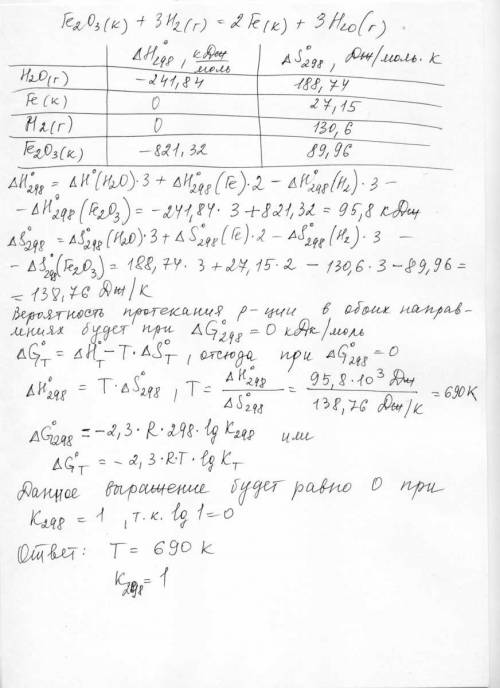 Fe₂O₃(к) + 3H₂(г) = 2Fe(к) + 3H₂O(г)
ΔH°₂₉₈, кДж/моль ΔS°₂₉₈, Дж/моль·К
H₂O(г) -241,84 188,74
Fe(к) 0 27,15
H₂(г) 0 130,6
Fe₂O₃(к) -821,32 89,96
ΔH°₂₉₈ = ΔH°(H₂O)·3 + ΔH°₂₉₈(Fe)·2 - ΔH°₂₉₈(H₂)·3 -
- ΔH°₂₉₈(Fe₂O₃) = -241,84·3 + 821,32 = 95,8 кДж
ΔS°₂₉₈ = ΔS°₂₉₈(H₂O)·3 + ΔS°₂₉₈(Fe)·2 - ΔS°₂₉₈(H₂)·3 -
- ΔS°₂₉₈(Fe₂O₃) = 188,74·3 + 27,15·2 - 130,6·3 - 89,96 =
= 138,76 Дж/К
Вероятность протекания р-ции в обоих направ-
лниях будет при ΔG°₂₉₈ = 0 кДж/моль
ΔG°T = ΔH°T - T·ΔS°T, отсюда при ΔG°₂₉₈ = 0
ΔH°₂₉₈ = T·ΔS°₂₉₈, T = ΔH°₂₉₈/ΔS°₂₉₈ = 95,8·10³ Дж/138,76 Дж/К = 690К
ΔG°₂₉₈ = -2,3·R·298·lg K₂₉₈ или
ΔG°T = -2,3·R·T·lg KT
Данное выражение будет равно 0 при
K₂₉₈ = 1, т.к. lg 1 = 0
Ответ: T = 690 К
K₂₉₈ = 1